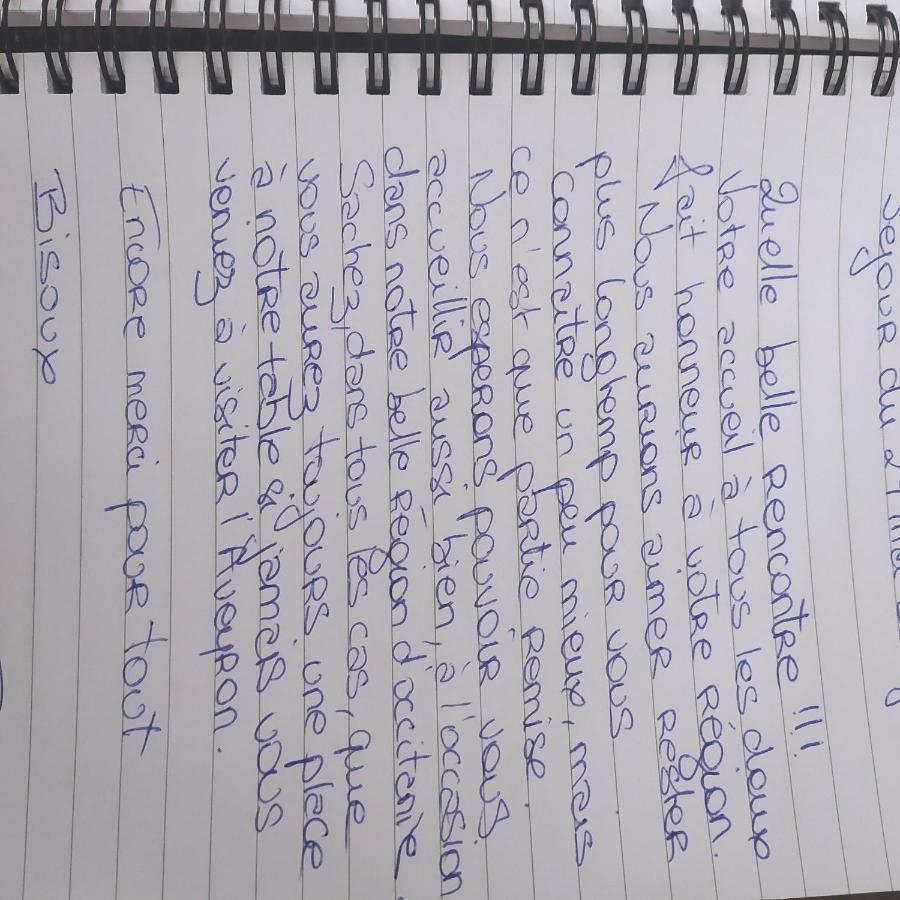 séjour du
Quelle belle rencontre !!!
Votre accueil à tous les deux
fait honneur à vôtre région.
Nous aurions aimer rester
plus longtemp pour vous
connaître un peu mieux, mais
ce n'est que partie remise.
Nous esperons pouvoir vous
accueillir aussi bien, à l'occasion
dans nôtre belle région d'occitanie.
Sachez, dans tous les cas, que
vous aurez toujours une place
à nôtre table si jamais vous
venez à visiter l'Aveyron.
Encore merci pour tout
Bisoux